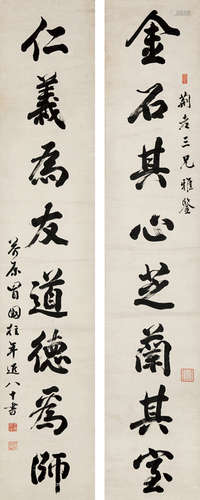 荊三兄雅鑒
金石其心芝蘭其室
仁義為友道德爲師
原國柱年八十書